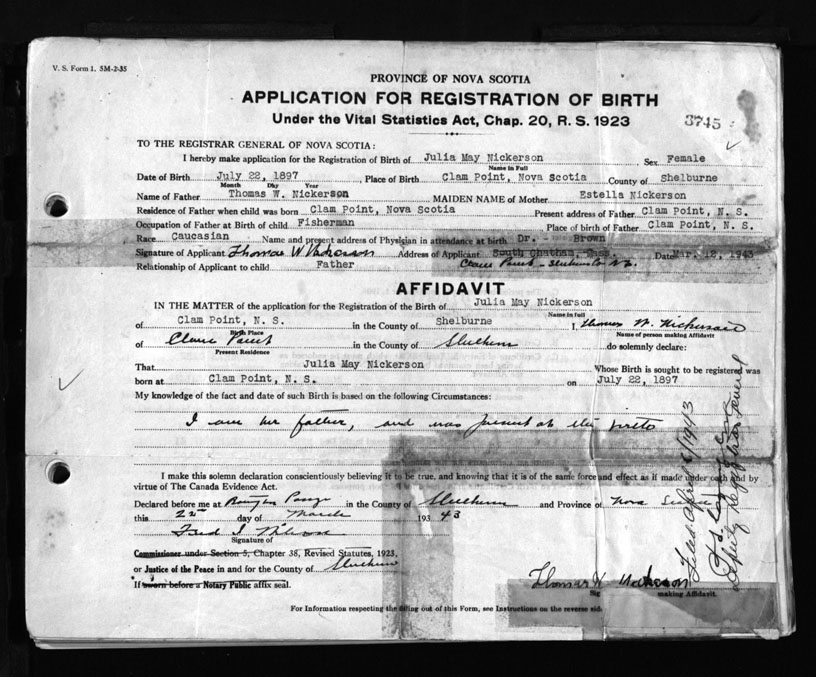 V. S. Form 1. 5M-2-35
PROVINCE OF NOVA SCOTIA
APPLICATION FOR REGISTRATION OF BIRTH
Under the Vital Statistics Act, Chap. 20, R. S. 1923
3745
TO THE REGISTRAR GENERAL OF NOVA SCOTIA:
I hereby make application for the Registration of Birth of Julia May Nickerson Sex Female
Name in Full
Date of Birth July 22, 1897, Place of Birth Clam Point, Nova Scotia County of Shelburne
Month Day Year
Name of Father Thomas W. Nickerson MAIDEN NAME of Mother Estella Nickerson
Residence of Father when child was born Clam Point, Nova Scotia Present address of Father Clam Point, N. S.
Occupation of Father at Birth of child Fisherman Place of birth of Father Clam Point, N. S.
Race Caucasian Name and present address of Physician in attendance at birth Dr. - Brown
Signature of Applicant Thomas W Nickerson Address of Applicant South Chatham, Mass. Date Mar. 12, 1943
Relationship of Applicant to child Father
AFFIDAVIT
IN THE MATTER of the application for the Registration of the Birth of Julia May Nickerson
Name in Full
of Clam Point, N. S. in the County of Shelburne I, Thomas W. Nickerson
Birth Place Name of person making Affidavit
of in the County of do solemnly declare:
Present Residence
That Julia May Nickerson Whose Birth is sought to be registered was
born at Clam Point, N. S. on July 22, 1897
My knowledge of the fact and date of such Birth is based on the following Circumstances:
I am her father, and was present at
I make this solemn declaration conscientiously believing it to be true, and knowing that it is of the same force and effect as if made under oath and by
virtue of The Canada Evidence Act.
Declared before me at in the County of and Province of Nova Scotia
this day of March 193 43
Signature of
Commissioner under Section 5, Chapter 38, Revised Statutes, 1923,
or Justice of the Peace in and for the County of
If sworn before a Notary Public affix seal.
Thomas W Nickerson
making Affidavit.
For Information respecting the filling out of this Form, see Instructions on the reverse side
Deputy Registrar General